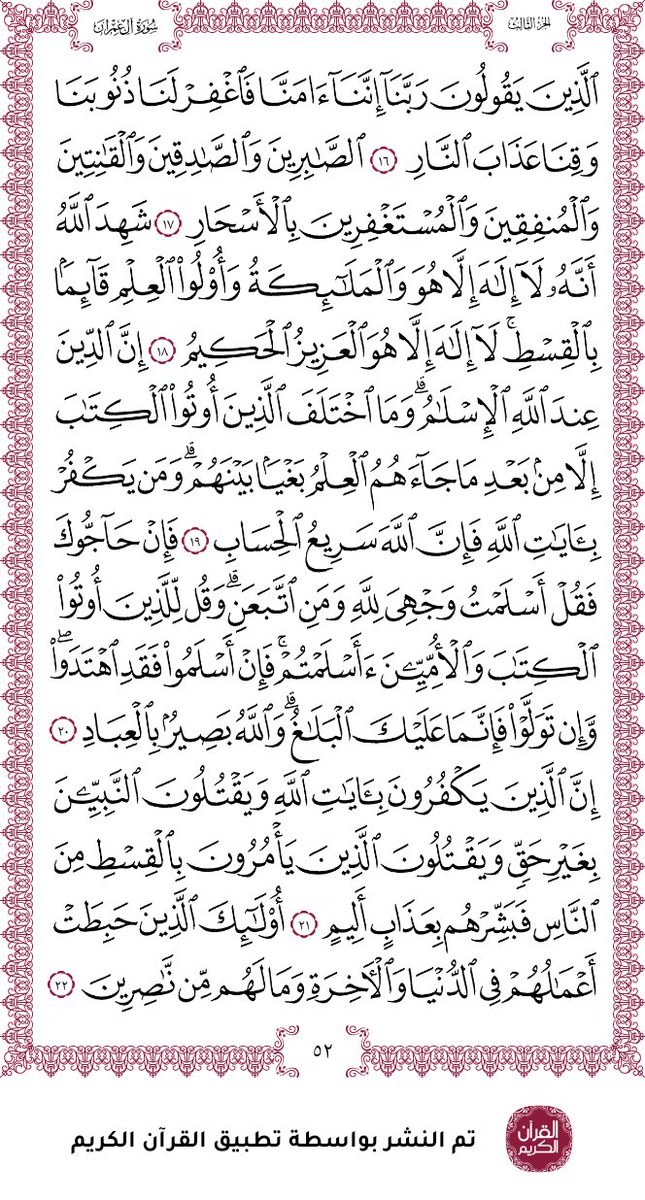 الجزء الثالث
سُورَةُ آلِ عِمْرَانَ
ٱلَّذِينَ يَقُولُونَ رَبَّنَآ إِنَّنَآ ءَامَنَّا فَٱغْفِرْ لَنَا ذُنُوبَنَا
وَقِنَا عَذَابَ ٱلنَّارِ ١٦ ٱلصَّٰبِرِينَ وَٱلصَّٰدِقِينَ وَٱلْقَٰنِتِينَ
وَٱلْمُنفِقِينَ وَٱلْمُسْتَغْفِرِينَ بِٱلْأَسْحَارِ ١٧ شَهِدَ ٱللَّهُ
أَنَّهُۥ لَآ إِلَٰهَ إِلَّا هُوَ وَٱلْمَلَٰٓئِكَةُ وَأُو۟لُوا۟ ٱلْعِلْمِ قَآئِمًۢا
بِٱلْقِسْطِ ۚ لَآ إِلَٰهَ إِلَّا هُوَ ٱلْعَزِيزُ ٱلْحَكِيمُ ١٨ إِنَّ ٱلدِّينَ
عِندَ ٱللَّهِ ٱلْإِسْلَٰمُ ۗ وَمَا ٱخْتَلَفَ ٱلَّذِينَ أُوتُوا۟ ٱلْكِتَٰبَ
إِلَّا مِنۢ بَعْدِ مَا جَآءَهُمُ ٱلْعِلْمُ بَغْيًۢا بَيْنَهُمْ ۗ وَمَن يَكْفُرْ
بِـَٔايَٰتِ ٱللَّهِ فَإِنَّ ٱللَّهَ سَرِيعُ ٱلْحِسَابِ ١٩ فَإِنْ حَآجُّوكَ
فَقُلْ أَسْلَمْتُ وَجْهِىَ لِلَّهِ وَمَنِ ٱتَّبَعَنِ ۗ وَقُل لِّلَّذِينَ أُوتُوا۟
ٱلْكِتَٰبَ وَٱلْأُمِّيِّـۧنَ ءَأَسْلَمْتُمْ ۚ فَإِنْ أَسْلَمُوا۟ فَقَدِ ٱهْتَدَوا۟ ۖ
وَّإِن تَوَلَّوْا۟ فَإِنَّمَا عَلَيْكَ ٱلْبَلَٰغُ ۗ وَٱللَّهُ بَصِيرٌۢ بِٱلْعِبَادِ ٢٠
إِنَّ ٱلَّذِينَ يَكْفُرُونَ بِـَٔايَٰتِ ٱللَّهِ وَيَقْتُلُونَ ٱلنَّبِيِّـۧنَ
بِغَيْرِ حَقٍّ وَيَقْتُلُونَ ٱلَّذِينَ يَأْمُرُونَ بِٱلْقِسْطِ مِنَ
ٱلنَّاسِ فَبَشِّرْهُم بِعَذَابٍ أَلِيمٍ ٢١ أُو۟لَٰٓئِكَ ٱلَّذِينَ حَبِطَتْ
أَعْمَٰلُهُمْ فِى ٱلدُّنْيَا وَٱلْءَاخِرَةِ وَمَا لَهُم مِّن نَّٰصِرِينَ ٢٢
٥٢
القرآن
الكريم
تم النشر بواسطة تطبيق القرآن الكريم